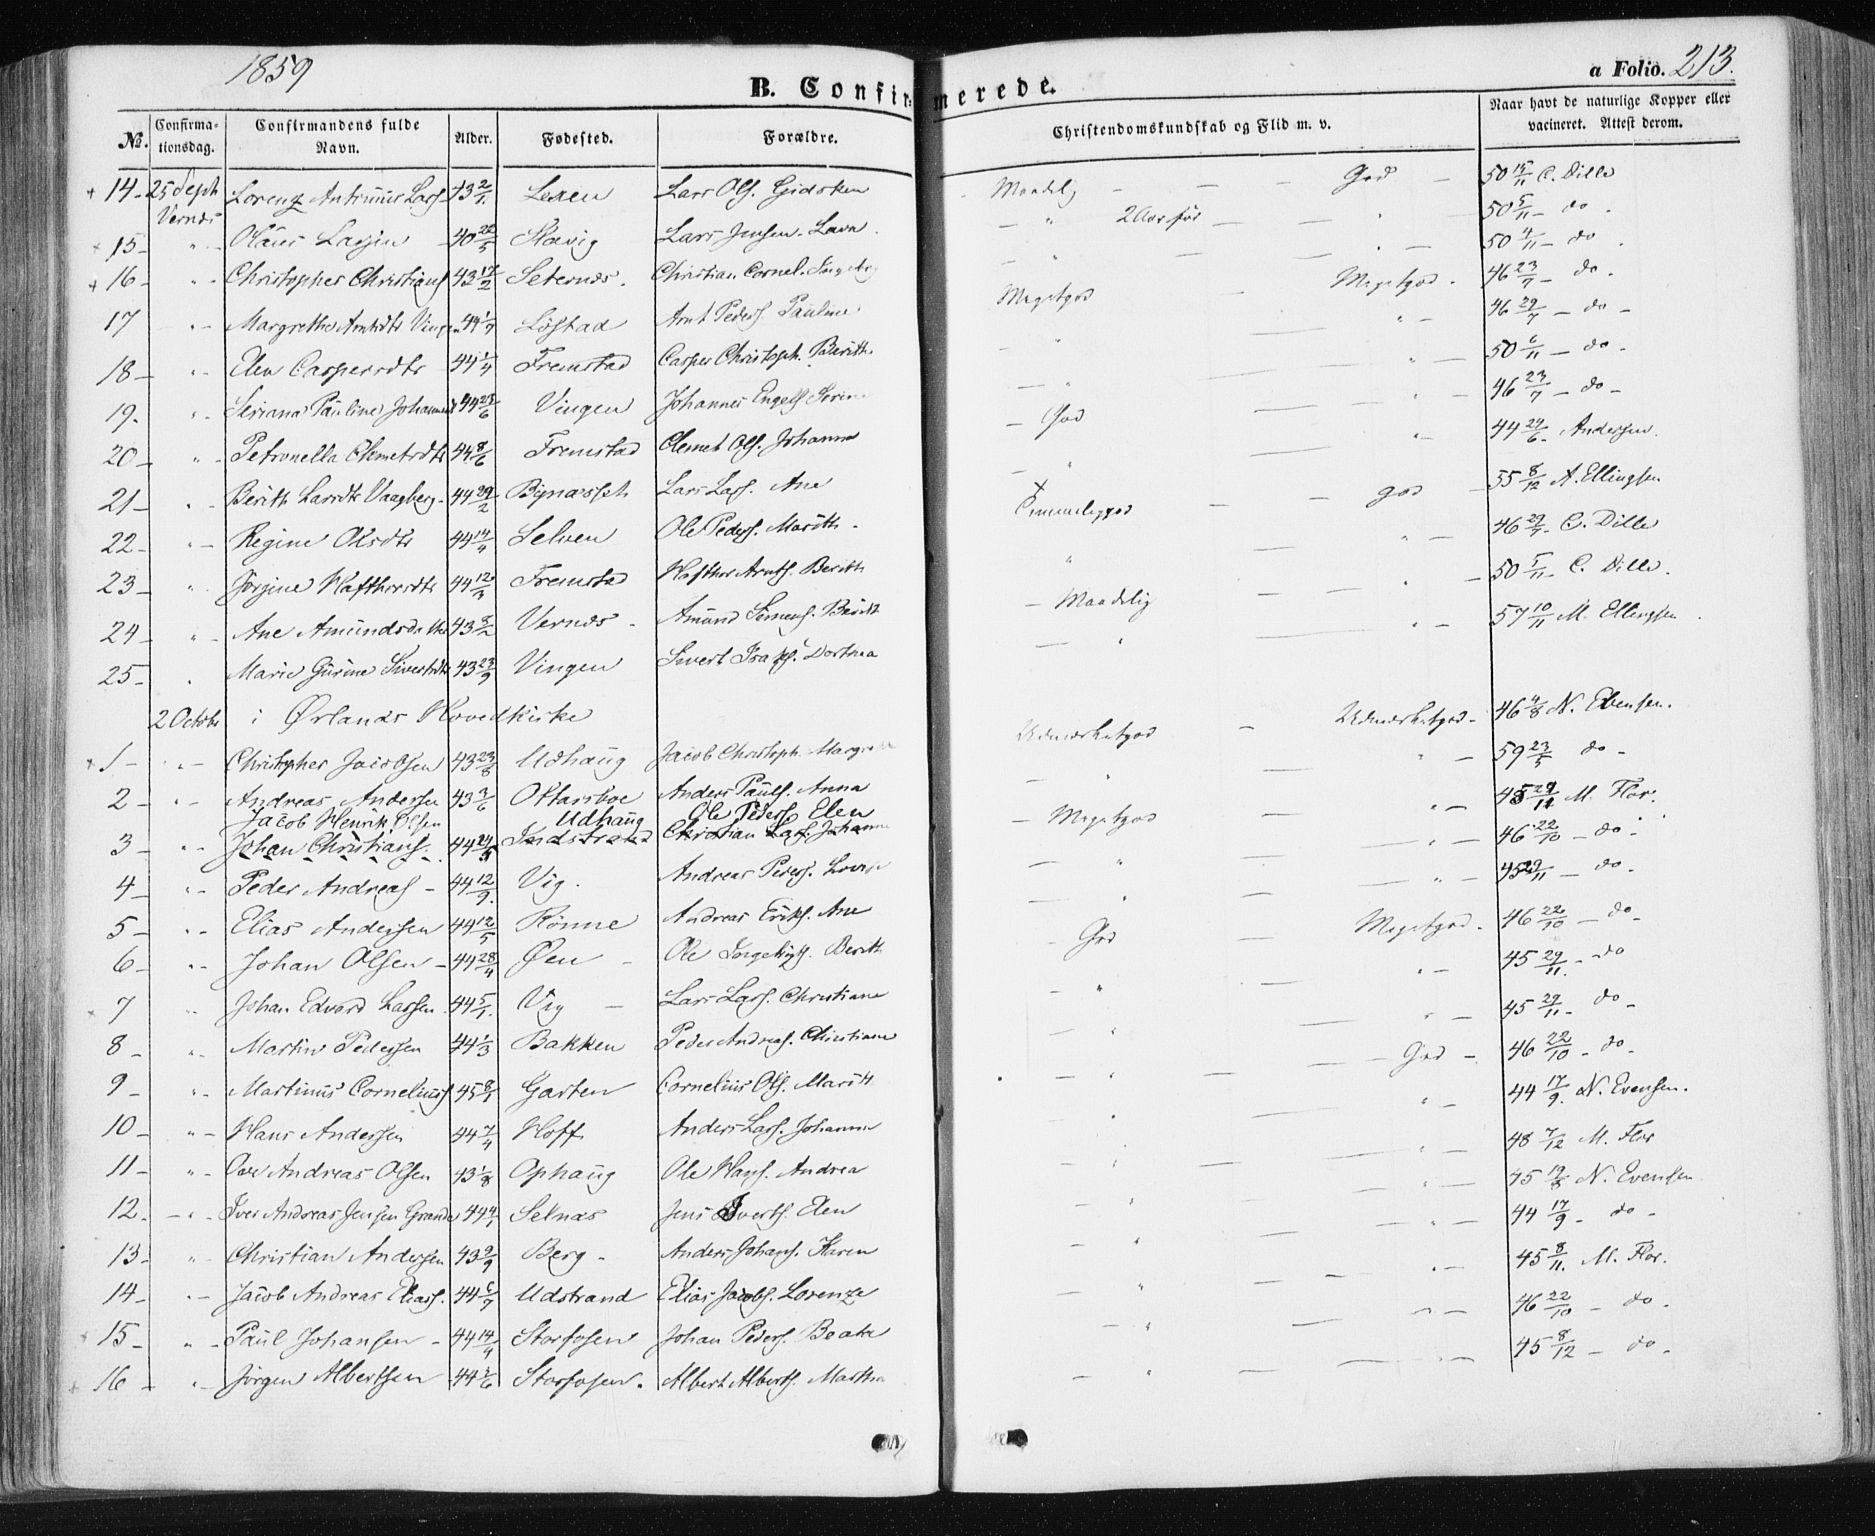 1859
B. Confirmerede.
a Folio. 213.
No. Confirmationsdag. Confirmandens fulde Navn. Alder. Fødested. Forældre. Christendomskundskab og Flid m. v. Naar havt de naturlige Kopper eller vacineret. Attest derom.
14 - 25 Sept Lorenz Antrinus Lars. 43 2/1 Lexen Lars Ols. Gidsken Maadelig - - - God - 50 15/11 C. Dille
Vernes
15 - " - Olaus Larsen 40 22/5 Stavig Lars Jensen. Lava " 2 Aar før - - " 50 5/11 - do
16 - " - Christopher Christians 43 17/2 Seternes. Christian Cornel. Ingebrg - " - 50 4/11 - do
17 " - Margrethe Arntdtr Vingen 44 1/7 Løstad Arnt Peders. Pauline Megetgod - Megetgod. 46 23/7 - do.
18 - " - Elen Caspersdtr 44 1/4 Fremstad Casper Christoph. Berith. - " - " - 46 29/7 - do -
19. " - Seriana Pauline Johannesd 44 23/6 Vingen Johannes Engels Serine - " - 50 6/11 - do -
20 - " - Petronella Clemetsdtr 44 8/6 Fremstad Clemet Ols. Johanna - God - " - 46 23/7 - do -
21 - " - Berith Larsdtr Vaagberg - 44 29/2 Bynæssets Lars Lars. Ane - " - 44 24/6 - Andersen.
22 - " - Regine Olsdtr 44 14/4 Selven Ole Peders. Marith - Temmeliggod - - god - 55 8/12 A. Ellingsen
23 - " - Jørgine Hafthorsdtr 44 12/3 Fremstad Hafthor Arnts. Berith " - " - 46 29/7 - C. Dille
24 - " - Ane Amundsda 43 8/2 Vernes - Amund Simens. Berith - Maadelig - 50 5/11 - C. Dille.
25 - " Marie Gurine Sivertdtr 43 23/9 Vingen Sivert Isaks. Dorthea - " - " - 57 10/11 M. Ellingsen
2 Octobr i Ørlands Hovedkirke
1 - " - Christopher Jacobsen 43 23/8 Udhaug Jacob Christoph. Margrethe Udmærketgod - Udmærketgod - 46 4/8 N. Evensen.
2 - " - Andreas Andersen 43 3/6 Ottersboe Anders Pauls. Anna - " - " - 59 23/5 do -
Jacob Henrik Olsen Udhaug Ole Peders. Elen
3 - " - Johan Christians. 44 24/5 Indstrand Christian Lars. Johanna - Megetgod - " - 45 29/11 M. Flor.
4 - " - Peder Andreas - 44 12/9. Vig. Andreas Peders. Lovise - " - " - 46 22/10 - do -
5 - " - Elias Andersen 44 12/5 Rönne Andreas Eriks. Ane - " - " - 45 29/11 - do -
6 - " - Johan Olsen - 44 28/4 Øen - Ole Ingebrigts. Berith - God - Megetgod - 46 22/10 - do -
7 " Johan Edvard Larsen. 44 5/1. Vig - Lars Lars. Christiane - " - " - 45 29/11. - do
8 - " - Martin Pedersen 44 1/3 Bakken Peder Andreas. Christiane - " - " - 45 29/11 - do -
9 - " - Martinus Cornelius 45 8/1 Garten Cornelius Ols. Marith - " - - God - 46 22/10 - do -
10 - " - Hans Andersen 44 7/4 Hoff Anders Lars. Johanna " - " - 44 17/9. N. Evensen.
11 - " - Ove Andreas Olsen 43 1/8 Ophaug Ole Hans. Andrea - " - " - 48 7/12 M. Flor
12. - " - Iver Andreas Jensen Grande 44 4/1 Selnæs Jens Iverts. Elen " - " - 45 19/8 N. Evensen
13 - " - Christian Andersen 43 2/9 Berg - Anders Johans. Karen - " - " - 44 17/9 - do -
14 - " - Jacob Andreas Elias. 44 6/7 Udstrand Elias Jacobs. Lorenze " - " - 45 8/11. M. Flor.
15 - " - Paul Johansen - 44 14/4 Storfosen Johan Peders. Beate - " - " - 46 22/10 - do -
16 - " - Jørgen Albertsen 44 4/6 Storfosen. Albert Alberts. Martha - " - " - 45 8/12 - do -